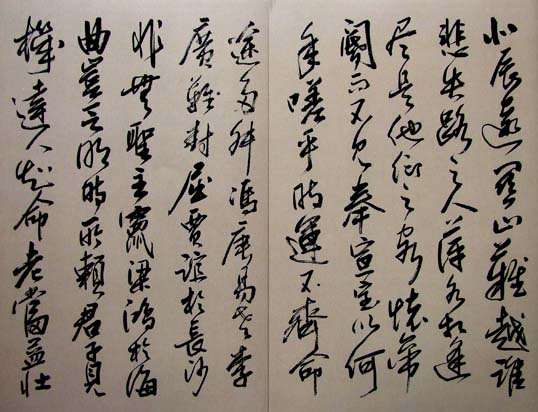 北辰遠關山難越誰
悲失路之人萍水相逢
尽是他鄉之客懷帝
閽而不見奉宣室以何
年嗟乎時運不齊命
途多舛馮唐易老李
廣難封屈賈誼於長沙
非無聖主竄梁鴻於海
曲豈乏明時所賴君子見
機達人知命老當益壯